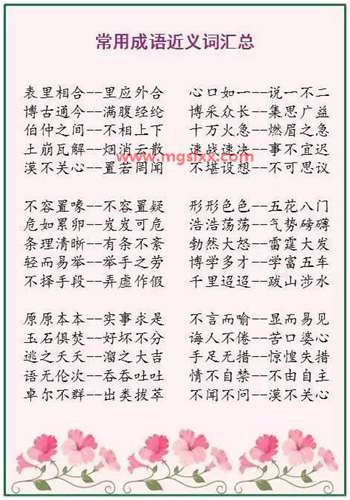 常用成语近义词汇总
表里相合--里应外合 心口如一--说一不二
博古通今--满腹经纶 博采众长--集思广益
伯仲之间--不相上下 十万火急--燃眉之急
土崩瓦解--烟消云散 速战速决--事不宜迟
www.mgsixx.com
漠不关心--置若罔闻 不堪设想--不可思议
不容置喙--不容置疑 形形色色--五花八门
危如累卵--岌岌可危 浩浩荡荡--气势磅礴
条理清晰--有条不紊 勃然大怒--雷霆大发
轻而易举--举手之劳 博学多才--学富五车
不择手段--弄虚作假 千里迢迢--跋山涉水
原原本本--实事求是 不言而喻--显而易见
玉石俱焚--好坏不分 诲人不倦--苦口婆心
逃之夭夭--溜之大吉 手足无措--惊惶失措
语无伦次--吞吞吐吐 情不自禁--不由自主
卓尔不群--出类拔萃 不闻不问--漠不关心